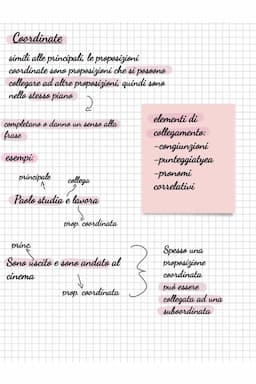 Coordinate
simili alle principali, le proposizioni
coordinate sono proposizioni che si possono
collegare ad altre proposizioni, quindi sono
nello stesso piano
completano o danno un senso alla
frase
esempi:
principale
collega
Paolo studia e lavora
prop. coordinata
elementi di
collegamento:
-congiunzioni
-punteggiatyea
-pronomi
correlativi
princ.
Sono uscito e sono andato al
cinema
prop. coordinata
Spesso una
proposizione
coordinata
può essere
collegata ad una
subordinata